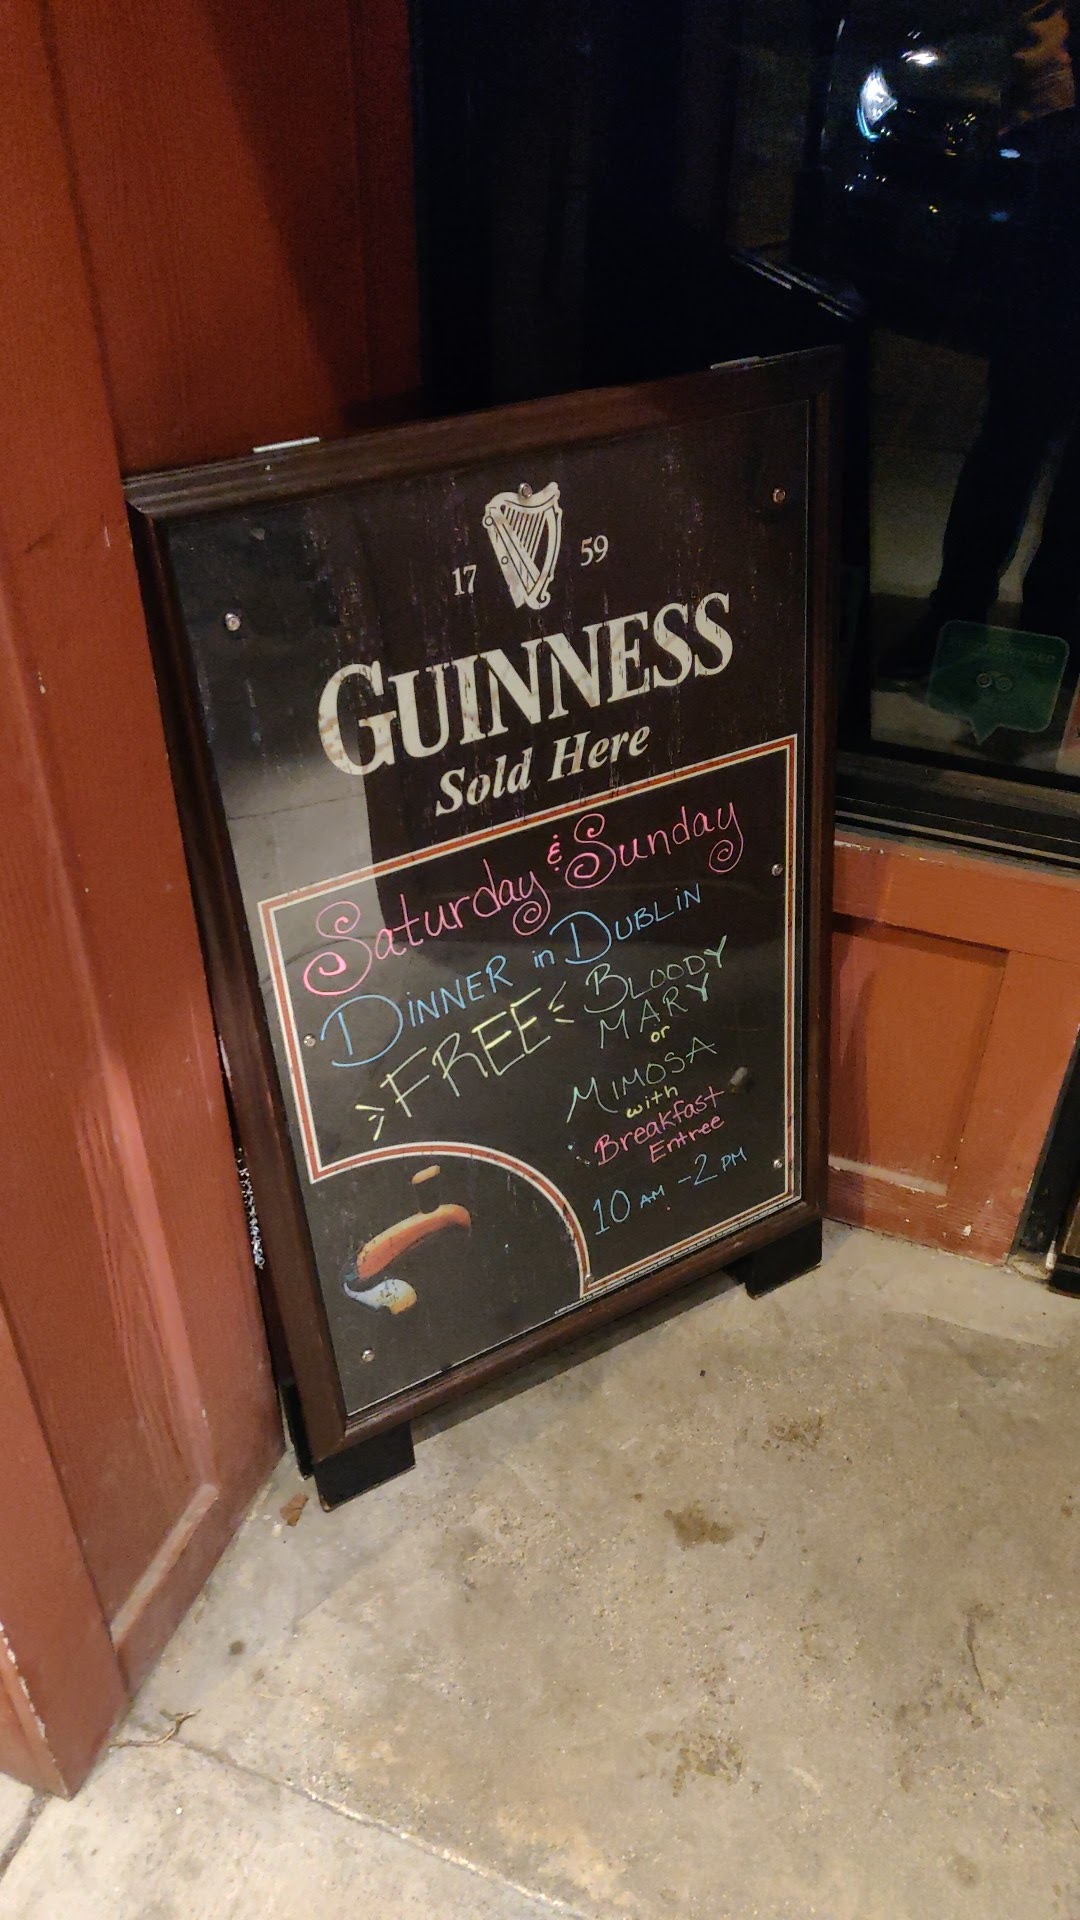 17 59
GUINNESS
Sold Here
Saturday & Sunday
DINNER in DUBLIN
FREE BLOODY
MARY
or
MIMOSA
with
Breakfast
Entree
10 AM - 2 PM